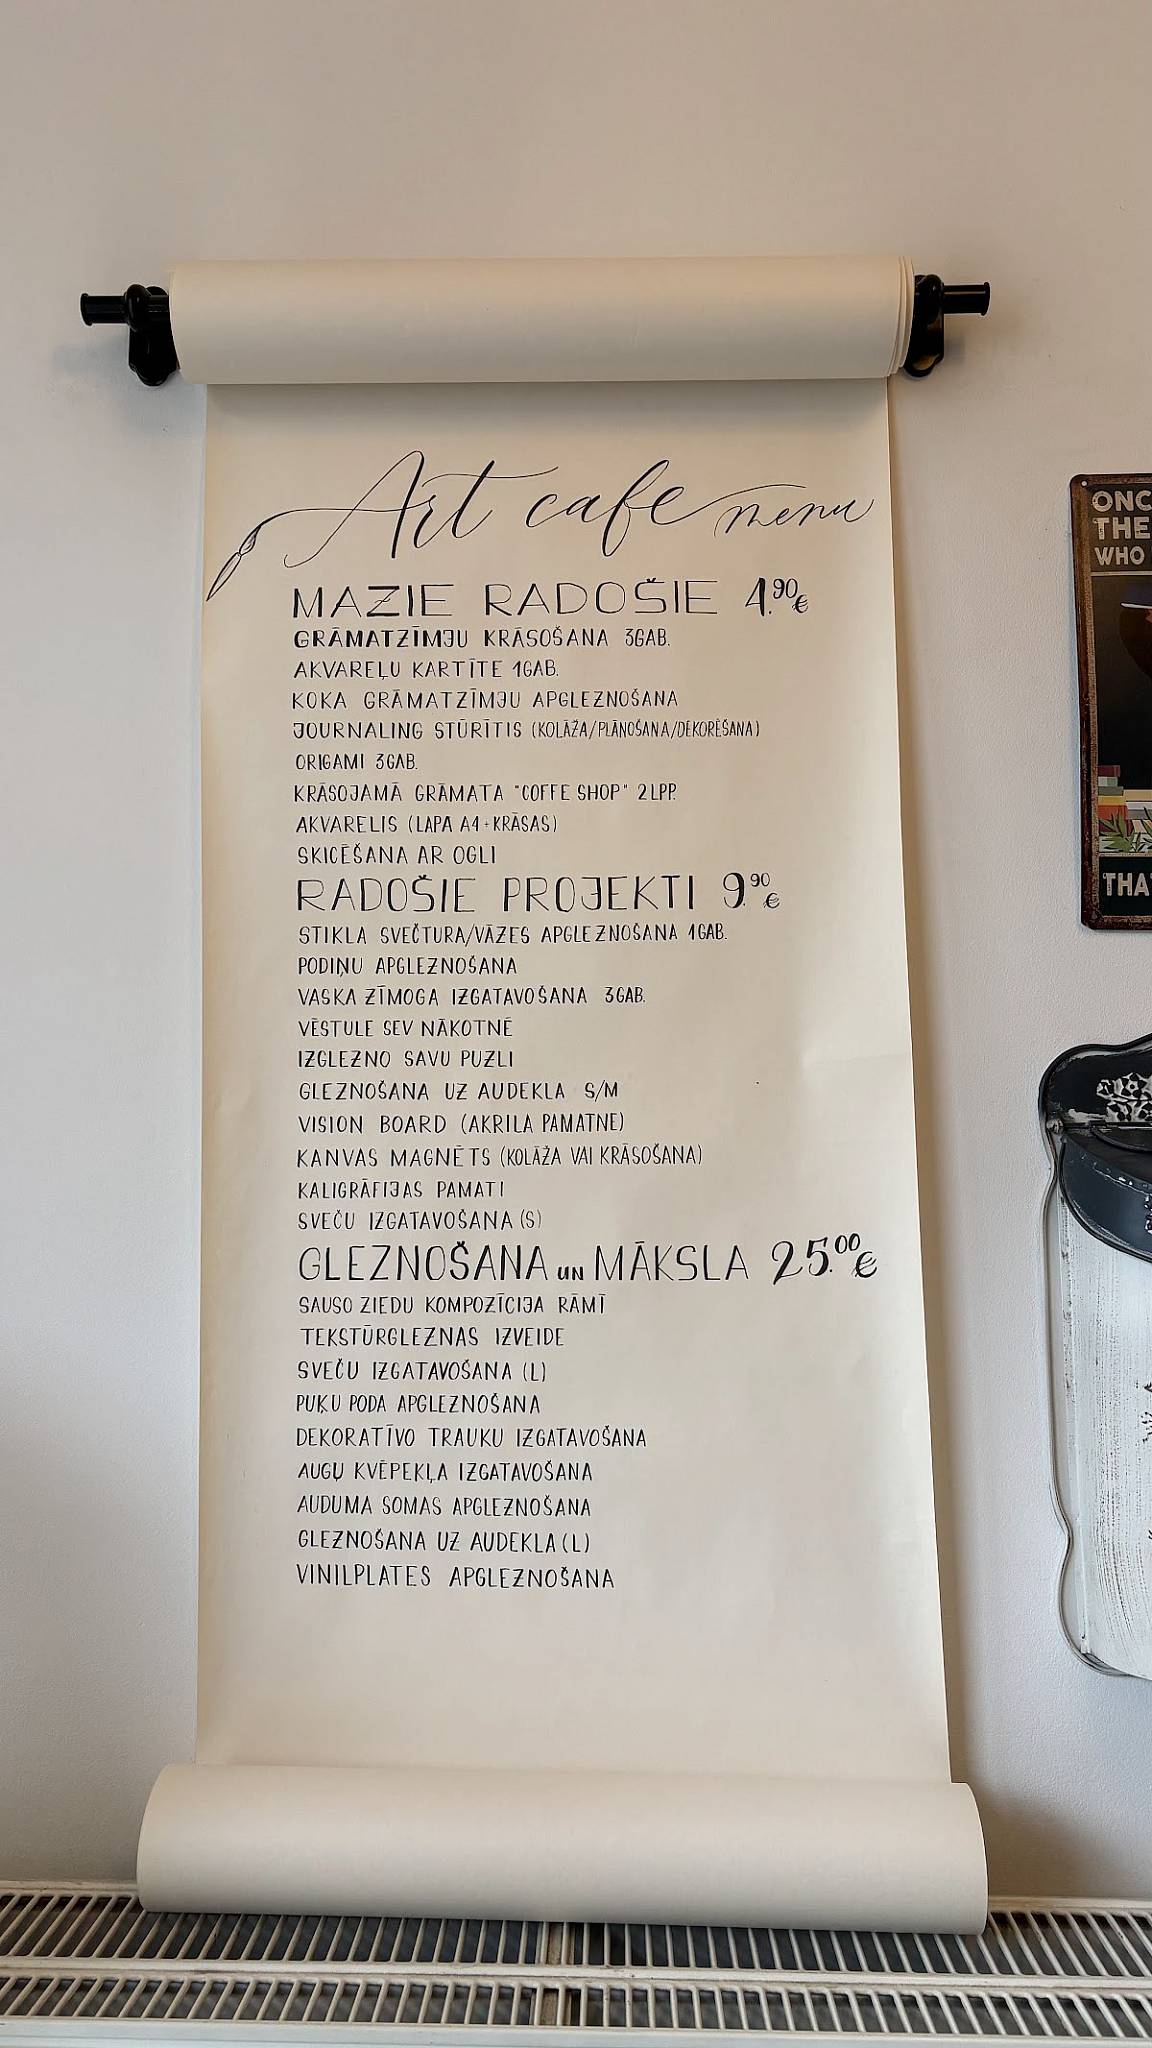 Art cafe menu
MAZIE RADOŠIE 4.90€
GRĀMATZĪMJU KRĀSOŠANA 3GAB.
AKVAREĻU KARTĪTE 1GAB.
KOKA GRĀMATZĪMJU APGLEZNOŠANA
JOURNALING STŪRĪTIS (KOLĀŽA/PLĀNOŠANA/DEKORĒŠANA)
ORIGAMI 3GAB.
KRĀSOJAMĀ GRĀMATA "COFFE SHOP" 2LPP.
AKVARELIS (LAPA A4+KRĀSAS)
SKICĒŠANA AR OGLI
RADOŠIE PROJEKTI 9.90€
STIKLA SVEČTURA/VĀZES APGLEZNOŠANA 1GAB.
PODIŅU APGLEZNOŠANA
VASKA ZĪMOGA IZGATAVOŠANA 3GAB.
VĒSTULE SEV NĀKOTNĒ
IZGLEZNO SAVU PUZLI
GLEZNOŠANA UZ AUDEKLA S/M
VISION BOARD (AKRILA PAMATNE)
KANVAS MAGNĒTS (KOLĀŽA VAI KRĀSOŠANA)
KALIGRĀFIJAS PAMATI
SVEČU IZGATAVOŠANA (S)
GLEZNOŠANA UN MĀKSLA 25.00€
SAUSO ZIEDU KOMPOZĪCIJA RĀMĪ
TEKSTŪRGLEZNAS IZVEIDE
SVEČU IZGATAVOŠANA (L)
PUĶU PODA APGLEZNOŠANA
DEKORATĪVO TRAUKU IZGATAVOŠANA
AUGU KVĒPEKĻA IZGATAVOŠANA
AUDUMA SOMAS APGLEZNOŠANA
GLEZNOŠANA UZ AUDEKLA (L)
VINILPLATES APGLEZNOŠANA
ONC
THE
WHO
THA